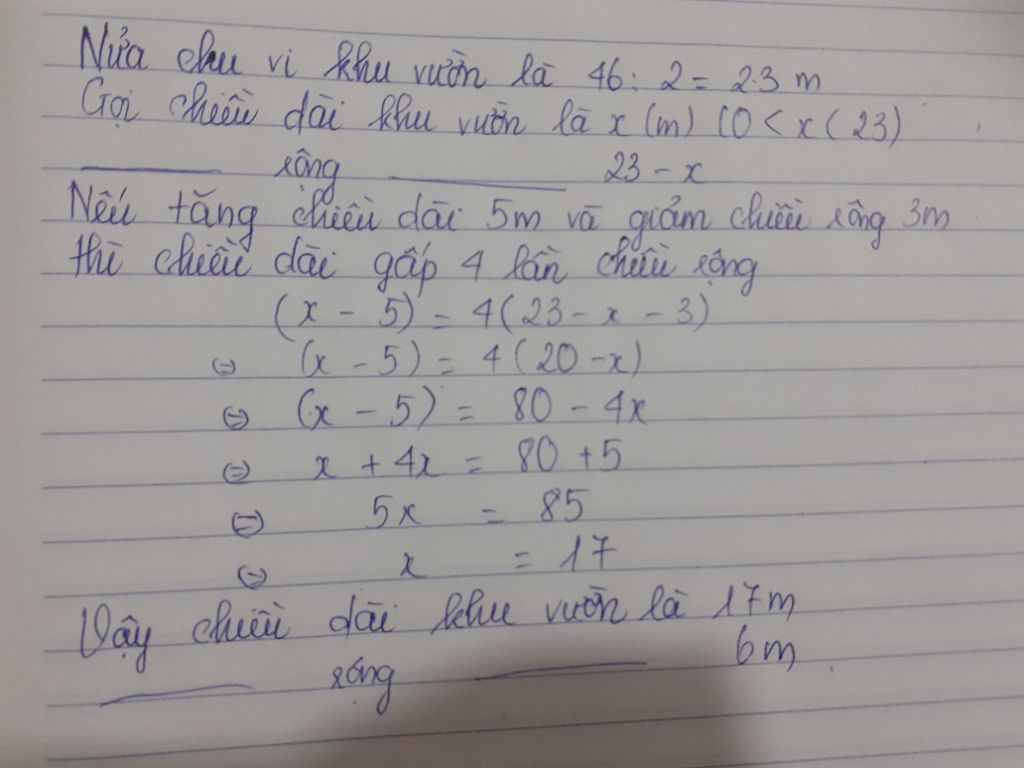 Nửa chu vi khu vườn là 46: 2 = 23 m
Gọi chiều dài khu vườn là x (m) (0 < x < 23)
rộng 23 - x
Nếu tăng chiều dài 5m và giảm chiều rộng 3m
thì chiều dài gấp 4 lần chiều rộng
(x - 5) = 4(23 - x - 3)
⇔ (x - 5) = 4(20 - x)
⇔ (x - 5) = 80 - 4x
⇔ x + 4x = 80 + 5
⇔ 5x = 85
⇔ x = 17
Vậy chiều dài khu vườn là 17m
rộng 6m